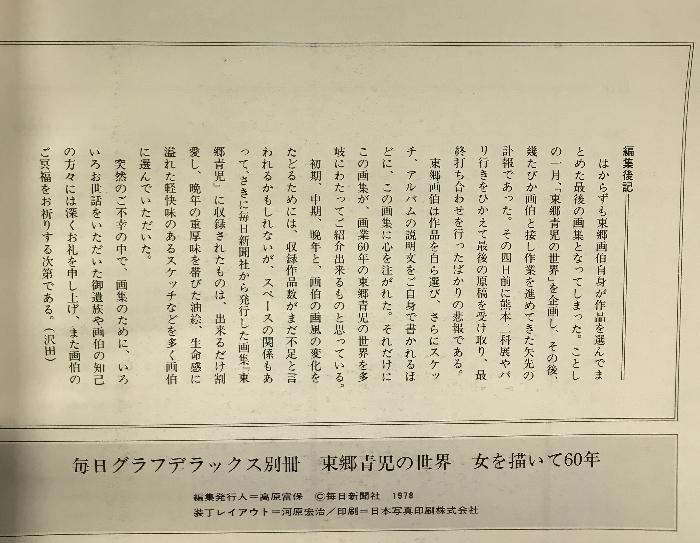 編集後記
はからずも東郷画伯自身が作品を選んでま
とめた最後の画集となってしまった。ことし
の一月、「東郷青児の世界」を企画し、その後、
幾たびか画伯と接し作業を進めてきた矢先の
訃報であった。その四日前に熊本二科展やパ
リ行きをひかえて最後の原稿を受け取り、最
終打ち合わせを行ったばかりの悲報である。
東郷画伯は作品を自ら選び、さらにスケッ
チ、アルバムの説明文をご自身で書かれるほ
どに、この画集に心を注がれた。それだけに
この画集が、画業60年の東郷青児の世界を多
岐にわたってご紹介出来るものと思っている。
初期、中期、晩年と、画伯の画風の変化を
たどるためには、収録作品数がまだ不足と言
われるかもしれないが、スペースの関係もあ
って、さきに毎日新聞社から発行した画集『東
郷青児』に収録されたものは、出来るだけ割
愛し、晩年の重厚味を帯びた油絵、生命感に
溢れた軽快味のあるスケッチなどを多く画伯
に選んでいただいた。
突然のご不幸の中で、画集のために、いろ
いろお世話をいただいた御遺族や画伯の知己
の方々には深くお礼を申し上げ、また画伯の
ご冥福をお祈りする次第である。（沢田）
毎日グラフデラックス別冊 東郷青児の世界 女を描いて60年
編集発行人＝高原富保 ©毎日新聞社 1978
装丁レイアウト＝河原宏治/印刷＝日本写真印刷株式会社